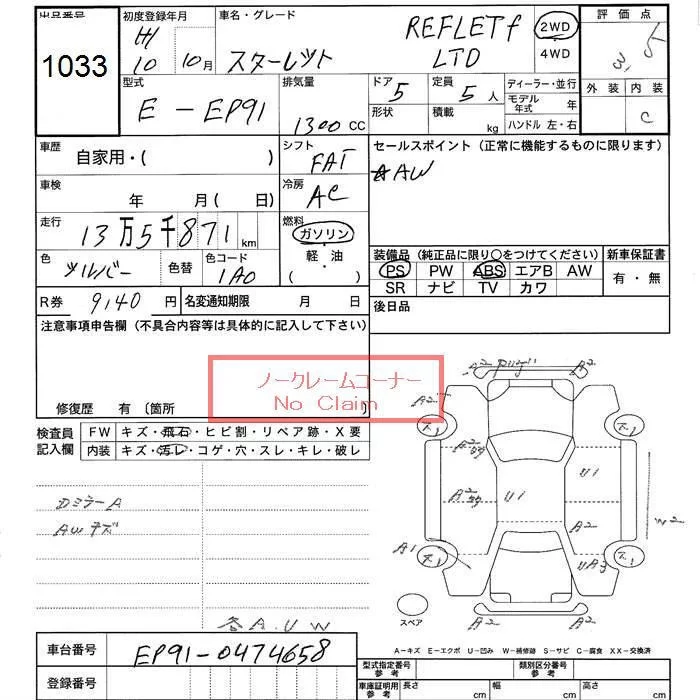 出品番号 初度登録年月 車名・グレード 評価点
1033
H
10 10月
スターレット
REFLET f
LTD
2WD
4WD
3.5
外装 内装
C
型式 排気量 ドア 定員 ディーラー・並行
E-EP91 1300cc 5 5人
モデル年式 年
形状 積載 kg ハンドル 左・右
車歴 自家用・( )
シフト FAT
セールスポイント(正常に機能するものに限ります)
☆AW
車検 年 月( 日)
冷房 AC
走行 13万5千871km
燃料 ガソリン
軽・油
( )
色 シルバー 色替 色コード 1A0
装備品(純正品に限り○をつけてください) 新車保証書
PS PW ABS エアB AW 有・無
SR ナビ TV カワ
R券 9,140円 名変通知期限 月 日
後日品
注意事項申告欄(不具合内容等は具体的に記入して下さい)
ノークレームコーナー
No Claim
修復歴 有〔箇所
検査員 FW キズ・飛石・ヒビ割・リペア跡・X要
記入欄 内装 キズ・汚レ・コゲ・穴・スレ・キレ・破レ
Dミラー A
AWキズ
各A.U W
A2 A2
A2
ス1 ス1
U1 U1
A2
W2
A1 UA3
ス1 ス1
スペア A2 A2
A-キズ E-エクボ U-凹み W-補修跡 S-サビ C-腐食 XX-交換済
車台番号 EP91-0474658
型式指定番号 参考 類別区分番号 参考
登録番号
車庫証明用 参考 長さ cm 幅 cm 高さ cm